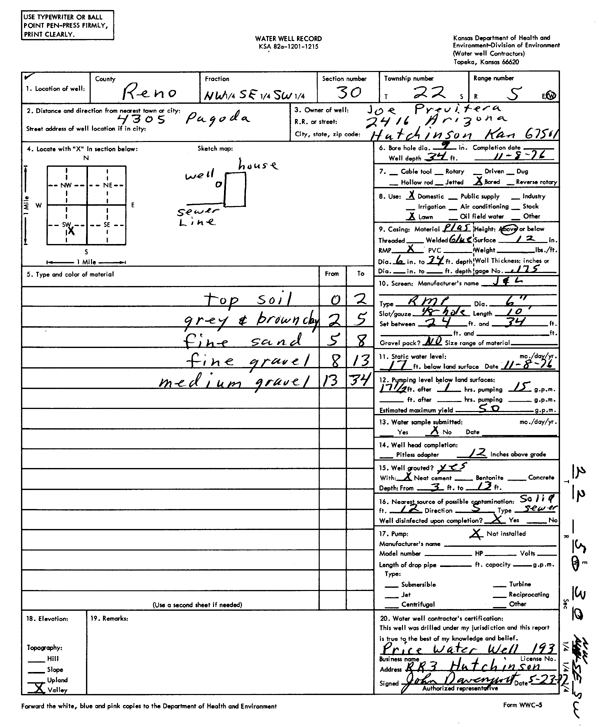 USE TYPEWRITER OR BALL
POINT PEN-PRESS FIRMLY,
PRINT CLEARLY.
WATER WELL RECORD
KSA 82a-1201-1215
Kansas Department of Health and
Environment-Division of Environment
(Water well Contractors)
Topeka, Kansas 66620
1. Location of well:
County
Reno
Fraction
NW 1/4 SE 1/4 SW 1/4
Section number
30
Township number
T 22 S
Range number
R 5 E W
2. Distance and direction from nearest town or city:
4305 Pagoda
Street address of well location if in city:
3. Owner of well: Joe Previtera
R.R. or street: 2416 Arizona
City, state, zip code: Hutchinson Kan 67501
4. Locate with "X" in section below:
N
NW NE
W E
SW X SE
S
1 Mile
1 Mile
Sketch map:
house
well
sewer
Line
5. Type and color of material From To
top soil 0 2
grey & brown clay 2 5
fine sand 5 8
fine gravel 8 13
medium gravel 13 34
(Use a second sheet if needed)
6. Bore hole dia. 9 in. Completion date
Well depth 34 ft. 11-8-76
7. Cable tool Rotary Driven Dug
Hollow rod Jetted X Bored Reverse rotary
8. Use: X Domestic Public supply Industry
Irrigation Air conditioning Stock
X Lawn Oil field water Other
9. Casing: Material Plas Height: Above or below
Threaded Welded Glue Surface 12 in.
RMP X PVC Weight lbs./ft.
Dia. 6 in. to 24 ft. depth Wall Thickness: inches or
Dia. in. to ft. depth gage No. .175
10. Screen: Manufacturer's name J&L
Type RMP Dia. 6"
Slot/gauze 48-hole Length 10'
Set between 24 ft. and 34 ft.
ft. and ft.
Gravel pack? NO Size range of material
11. Static water level: mo./day/yr.
17 ft. below land surface Date 11-8-76
12. Pumping level below land surfaces:
17 1/2 ft. after 1 hrs. pumping 15 g.p.m.
ft. after hrs. pumping g.p.m.
Estimated maximum yield 50 g.p.m.
13. Water sample submitted: mo./day/yr.
Yes X No Date
14. Well head completion:
Pitless adapter 12 Inches above grade
15. Well grouted? yes
With: X Neat cement Bentonite Concrete
Depth: From 3 ft. to 13 ft.
16. Nearest source of possible contamination: Solid
ft. 12 Direction S Type sewer
Well disinfected upon completion? X Yes No
17. Pump: X Not installed
Manufacturer's name
Model number HP Volts
Length of drop pipe ft. capacity g.p.m.
Type:
Submersible Turbine
Jet Reciprocating
Centrifugal Other
18. Elevation:
Topography:
Hill
Slope
Upland
X Valley
19. Remarks:
20. Water well contractor's certification:
This well was drilled under my jurisdiction and this report
is true to the best of my knowledge and belief.
Price Water Well 193
Business name License No.
Address RR3 Hutchinson
Signed John Davenport Date 5-23-77
Authorized representative
Forward the white, blue and pink copies to the Department of Health and Environment
Form WWC-5
T 22 R 5 E W Sec 30 NW 1/4 SE 1/4 SW 1/4